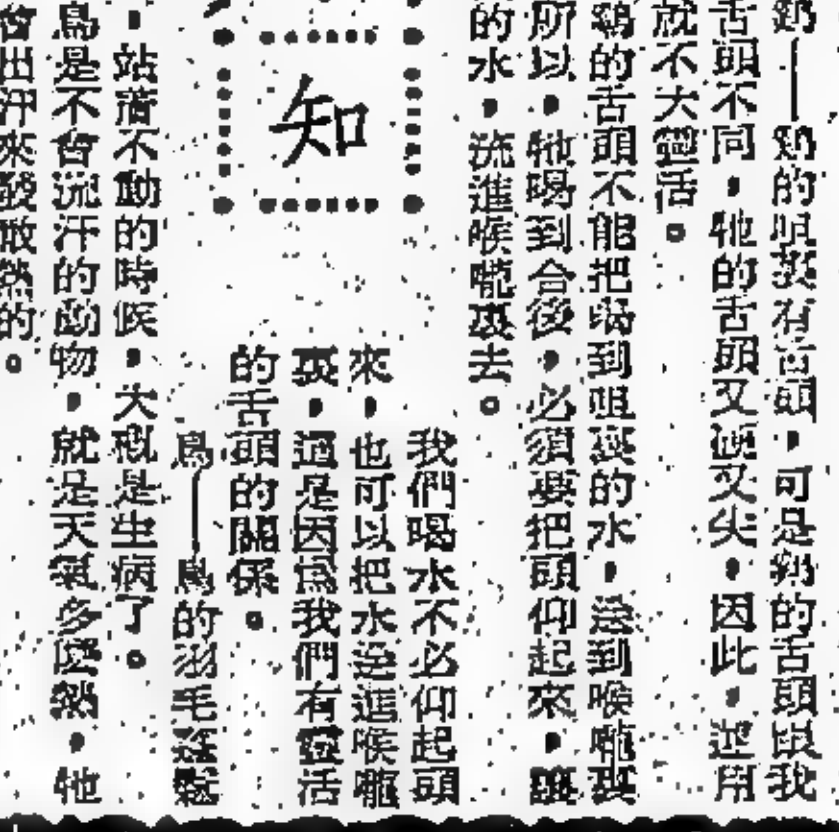 鷄——鷄的咀裏有舌頭，可是鷄的舌頭跟我
舌頭不同，牠的舌頭又硬又尖，因此，運用
就不大靈活。
鷄的舌頭不能把喝到咀裏的水，送到喉嚨裏
所以，牠喝到合後，必須要把頭仰起來，讓
的水，流進喉嚨裏去。
我們喝水不必仰起頭
來，也可以把水送進喉嚨
裏，這是因爲我們有靈活
的舌頭的關係。
鳥——鳥的羽毛蓬鬆
，站着不動的時候，大概是生病了。
鳥是不會流汗的動物，就是天氣多麼熱，牠
會出汗來發散熱的。
知